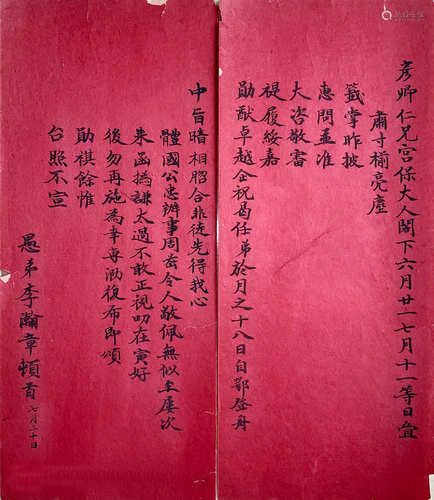 彦卿仁兄宫保大人閣下六月廿一七月十一等日叠
肅寸楮亮塵
籤掌昨披
惠問並准
大咨敬審
禔履綏嘉
勛猷卓越企祝曷任弟於月之十八日自鄂登舟
中旨暗相脗合非徒先得我心
體國公忠辦事周密令人敬佩無似至屢次
朱函撝謙太過不敢正視叨在寅好
後勿再施為幸専泐復布即頌
勛祺餘惟
台照不宣
愚弟李瀚章頓首
七月二十日